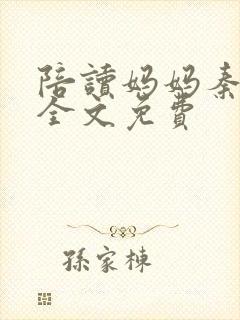 陪讀媽媽秦
全文免費
孫家棟